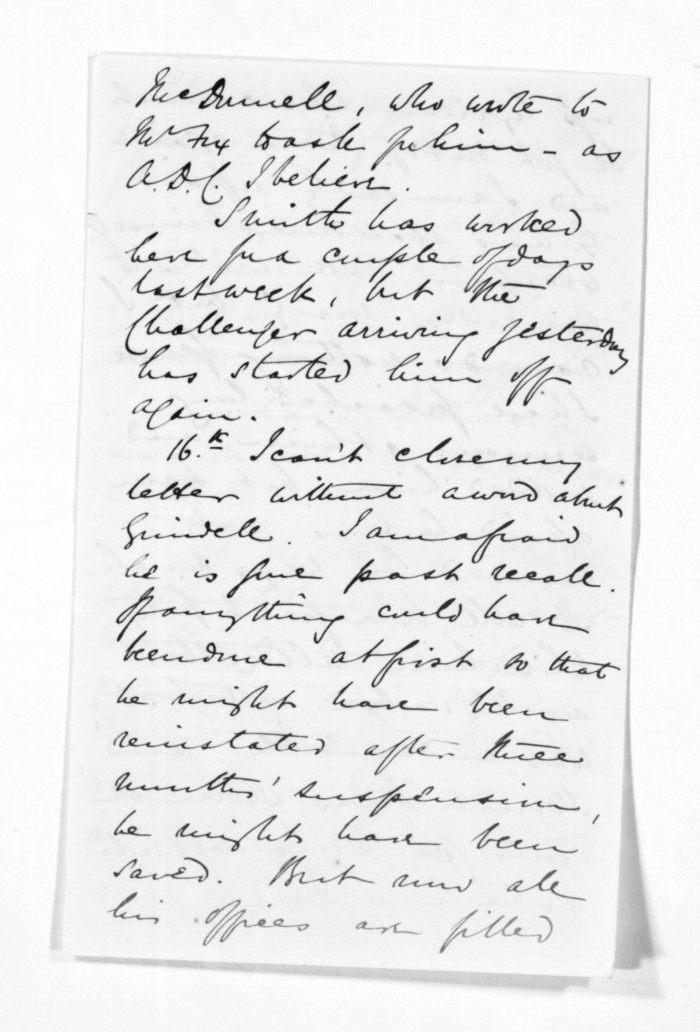 McDonnell, who wrote to
Mr Fox to ask for him - as
A.D.C. I believe.
Smith has worked
here for a couple of days
last week, but the
Challenger arriving yesterday
has started him off
again.
16.th I can't close my
letter without a word about
Grindell. I am afraid
he is gone past recall.
If anything could have
been done at first so that
he might have been
reinstated after three
months' suspension,
he might have been
saved. But now all
his offices are filled